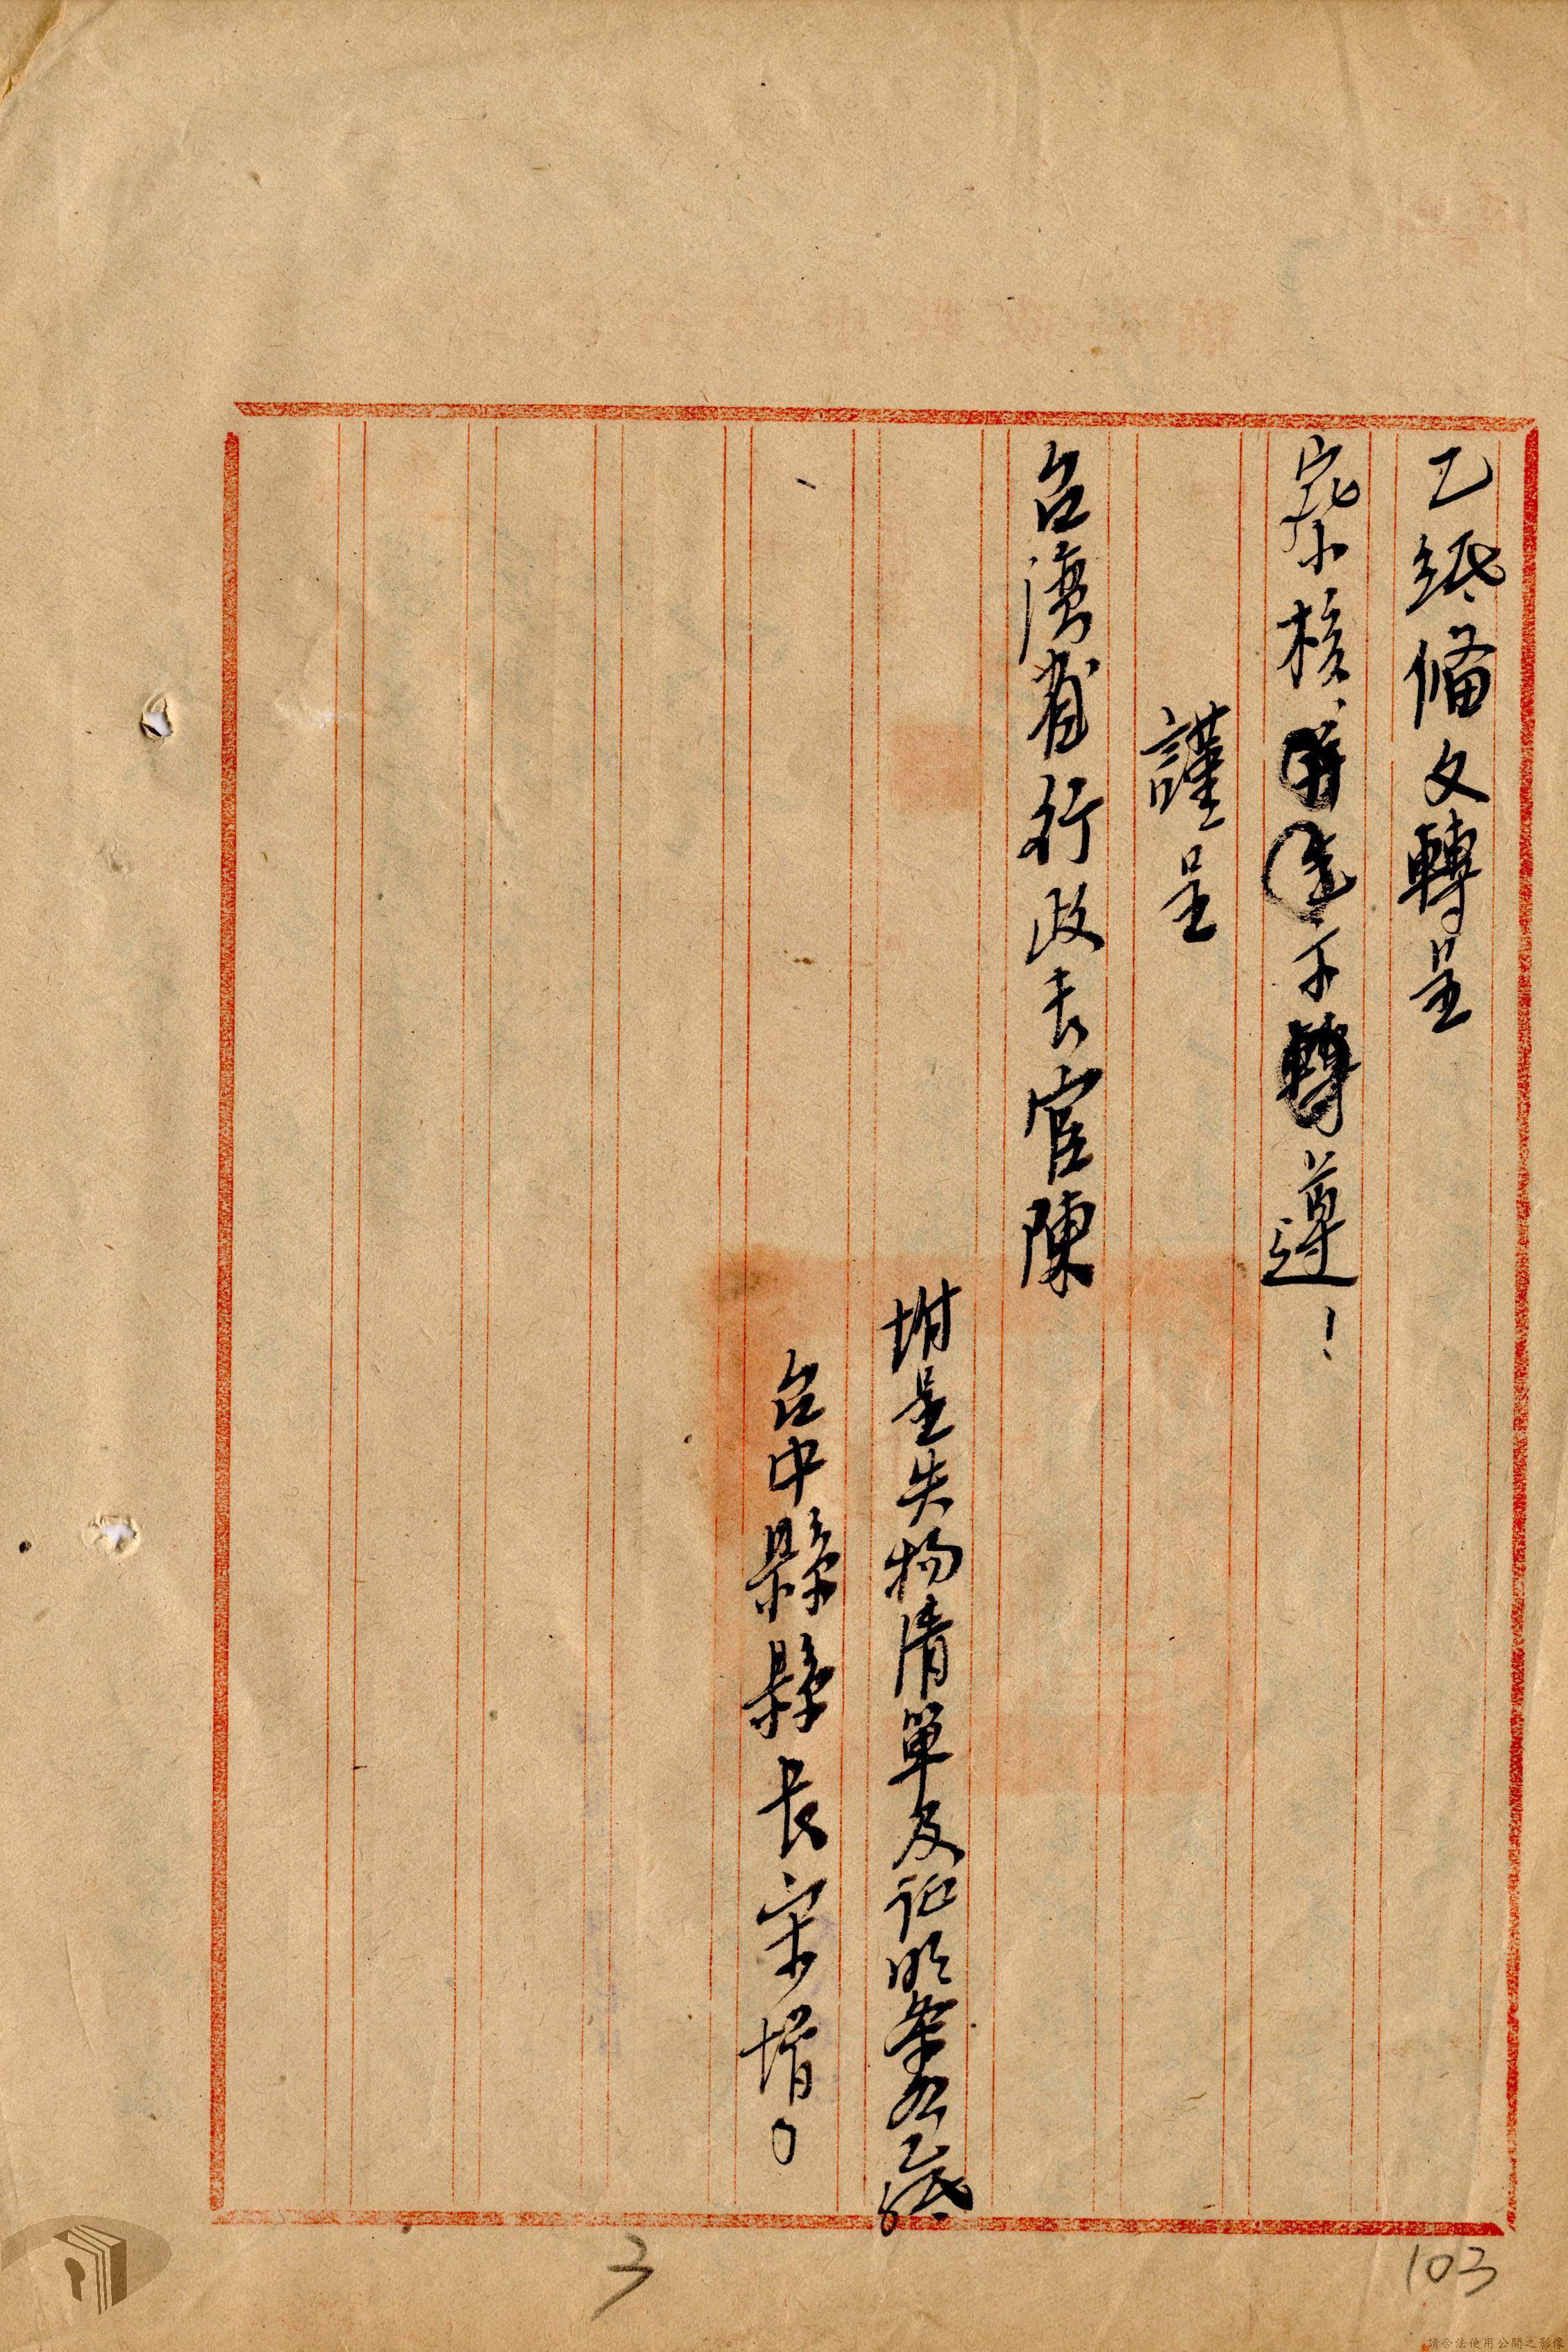 乙紙備文轉呈
察核、示轉遵!
謹呈
台湾省行政长官陳
坿呈失物清單及证明等各乙紙
台中縣縣长宋增
103
3
請合法使用公開之影像